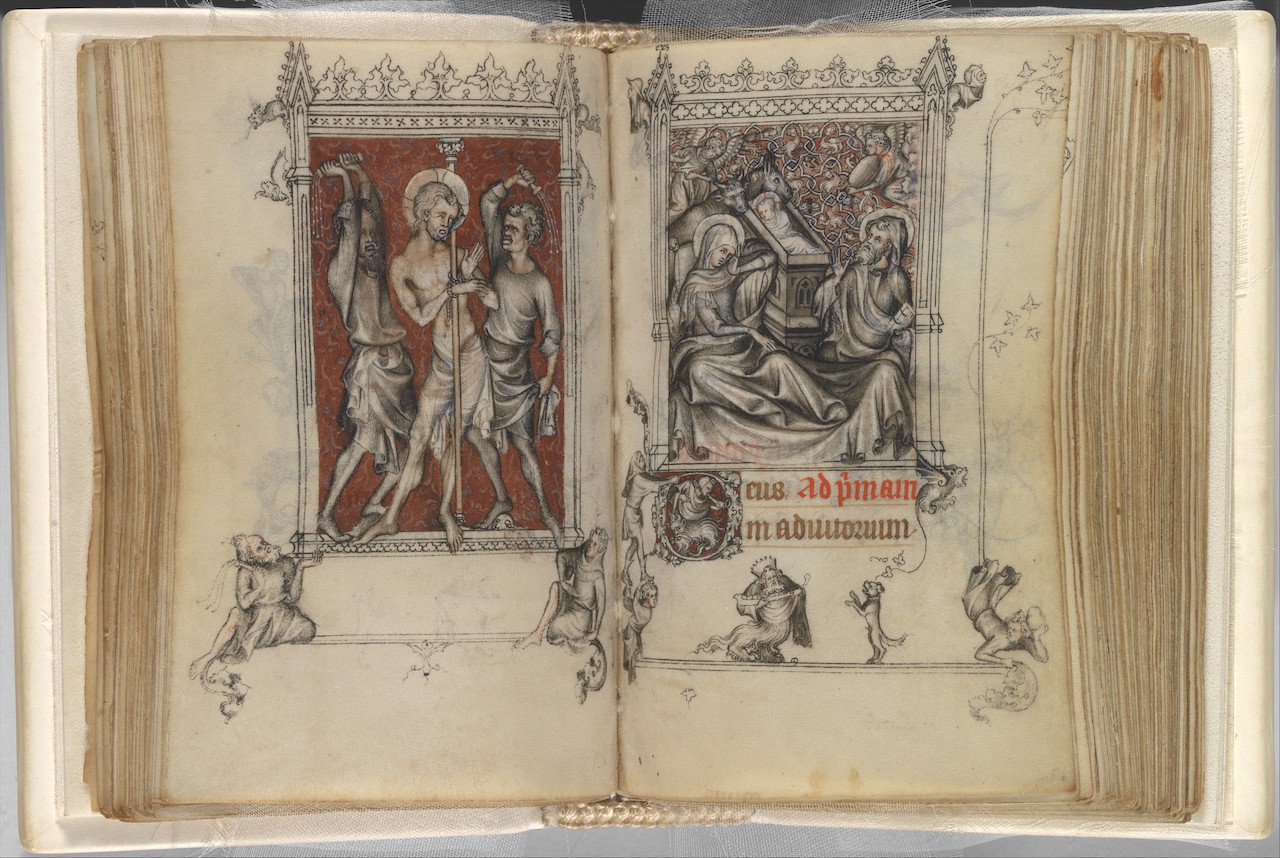 eus. Ad p̄mam
in adiutorium